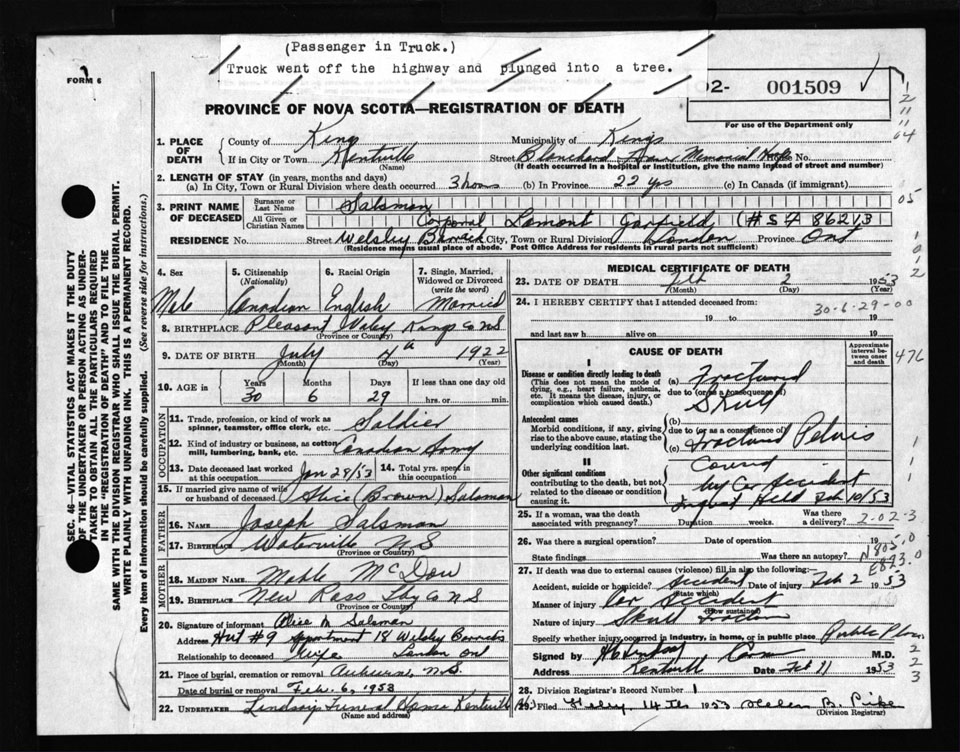 (Passenger in Truck.)
Truck went off the highway and plunged into a tree.
FORM 6
02- 001509
PROVINCE OF NOVA SCOTIA—REGISTRATION OF DEATH
For use of the Department only
1. PLACE OF DEATH
County of Kings Municipality of Kings
If in City or Town Kentville Street Blanchard Memorial House No.
(Name) (If death occurred in a hospital or institution, give the name instead of street and number)
2. LENGTH OF STAY (in years, months and days)
(a) In City, Town or Rural Division where death occurred 3 hours (b) In Province 22 yrs (c) In Canada (if immigrant)
3. PRINT NAME OF DECEASED
Surname or Last Name Salsman
All Given or Christian Names Corporal Lamont Garfield
RESIDENCE No. Street Welsley Barrack City, Town or Rural Division London Province Ont
(Residence means usual place of abode. Post Office Address for residents in rural parts not sufficient)
4. Sex Male
5. Citizenship (Nationality) Canadian
6. Racial Origin English
7. Single, Married, Widowed or Divorced (write the word) Married
8. BIRTHPLACE Pleasant Valey Kings Co NS
(Province or Country)
9. DATE OF BIRTH July 4th 1922
(Month) (Day) (Year)
10. AGE in Years 30 Months 6 Days 29 If less than one day old hrs. or min.
OCCUPATION
11. Trade, profession, or kind of work as spinner, teamster, office clerk, etc. Soldier
12. Kind of industry or business, as cotton mill, lumbering, bank, etc. Canadian Army
13. Date deceased last worked at this occupation Jan 28/53 14. Total yrs. spent in this occupation
15. If married give name of wife or husband of deceased Alice (Brown) Salsman
FATHER
16. NAME Joseph Salsman
17. BIRTHPLACE Waterville NS
(Province or Country)
MOTHER
18. MAIDEN NAME Mable McDow
19. BIRTHPLACE New Ross NS
(Province or Country)
20. Signature of informant Alice M Salsman
Address Hut #9 Apartment 18 Welsley Barracks
Relationship to deceased Wife London Ont
21. Place of burial, cremation or removal Auburn, N.S.
Date of burial or removal Feb. 6, 1953
22. UNDERTAKER Lindsays Funeral Home Kentville
(Name and address)
MEDICAL CERTIFICATE OF DEATH
23. DATE OF DEATH Feb 2 1953
(Month) (Day)
24. I HEREBY CERTIFY that I attended deceased from:
30-6-29-00
19 to 19
and last saw h alive on 19
CAUSE OF DEATH
Approximate interval between onset and death
476
I
Disease or condition directly leading to death
(This does not mean the mode of dying, e.g., heart failure, asthenia, etc. It means the disease, injury, or complication which caused death.)
(a) Fractured
due to (or as a consequence of)
Skull
Antecedent causes
Morbid conditions, if any, giving rise to the above cause, stating the underlying condition last.
(b)
due to (or as a consequence of)
Fractured Pelvis
(c)
II
Other significant conditions
contributing to the death, but not related to the disease or condition causing it.
Caused
by Car Accident
Inquest Held Feb 10/53
25. If a woman, was the death associated with pregnancy? Duration weeks. Was there a delivery?
2-02-3
26. Was there a surgical operation? Date of operation 19
State findings Was there an autopsy?
N805.0
E823.0
27. If death was due to external causes (violence) fill in also the following:
Accident, suicide or homicide? Accident Date of injury Feb 2 1953
(State which)
Manner of injury Car Accident
(How sustained)
Nature of injury Skull fracture
Specify whether injury occurred in industry, in home, or in public place Public Place
Signed by M.D.
Address Kentville Date Feb 11 1953
28. Division Registrar's Record Number 1
29. Filed Feby. 14 1953 Helen B. Pike
(Division Registrar)
SEC. 46—VITAL STATISTICS ACT MAKES IT THE DUTY OF THE UNDERTAKER OR PERSON ACTING AS UNDERTAKER TO OBTAIN ALL THE PARTICULARS REQUIRED IN THE "REGISTRATION OF DEATH" AND TO FILE THE SAME WITH THE DIVISION REGISTRAR WHO SHALL ISSUE THE BURIAL PERMIT.
WRITE PLAINLY WITH UNFADING INK. THIS IS A PERMANENT RECORD.
Every item of information should be carefully supplied. (See reverse side for instructions.)